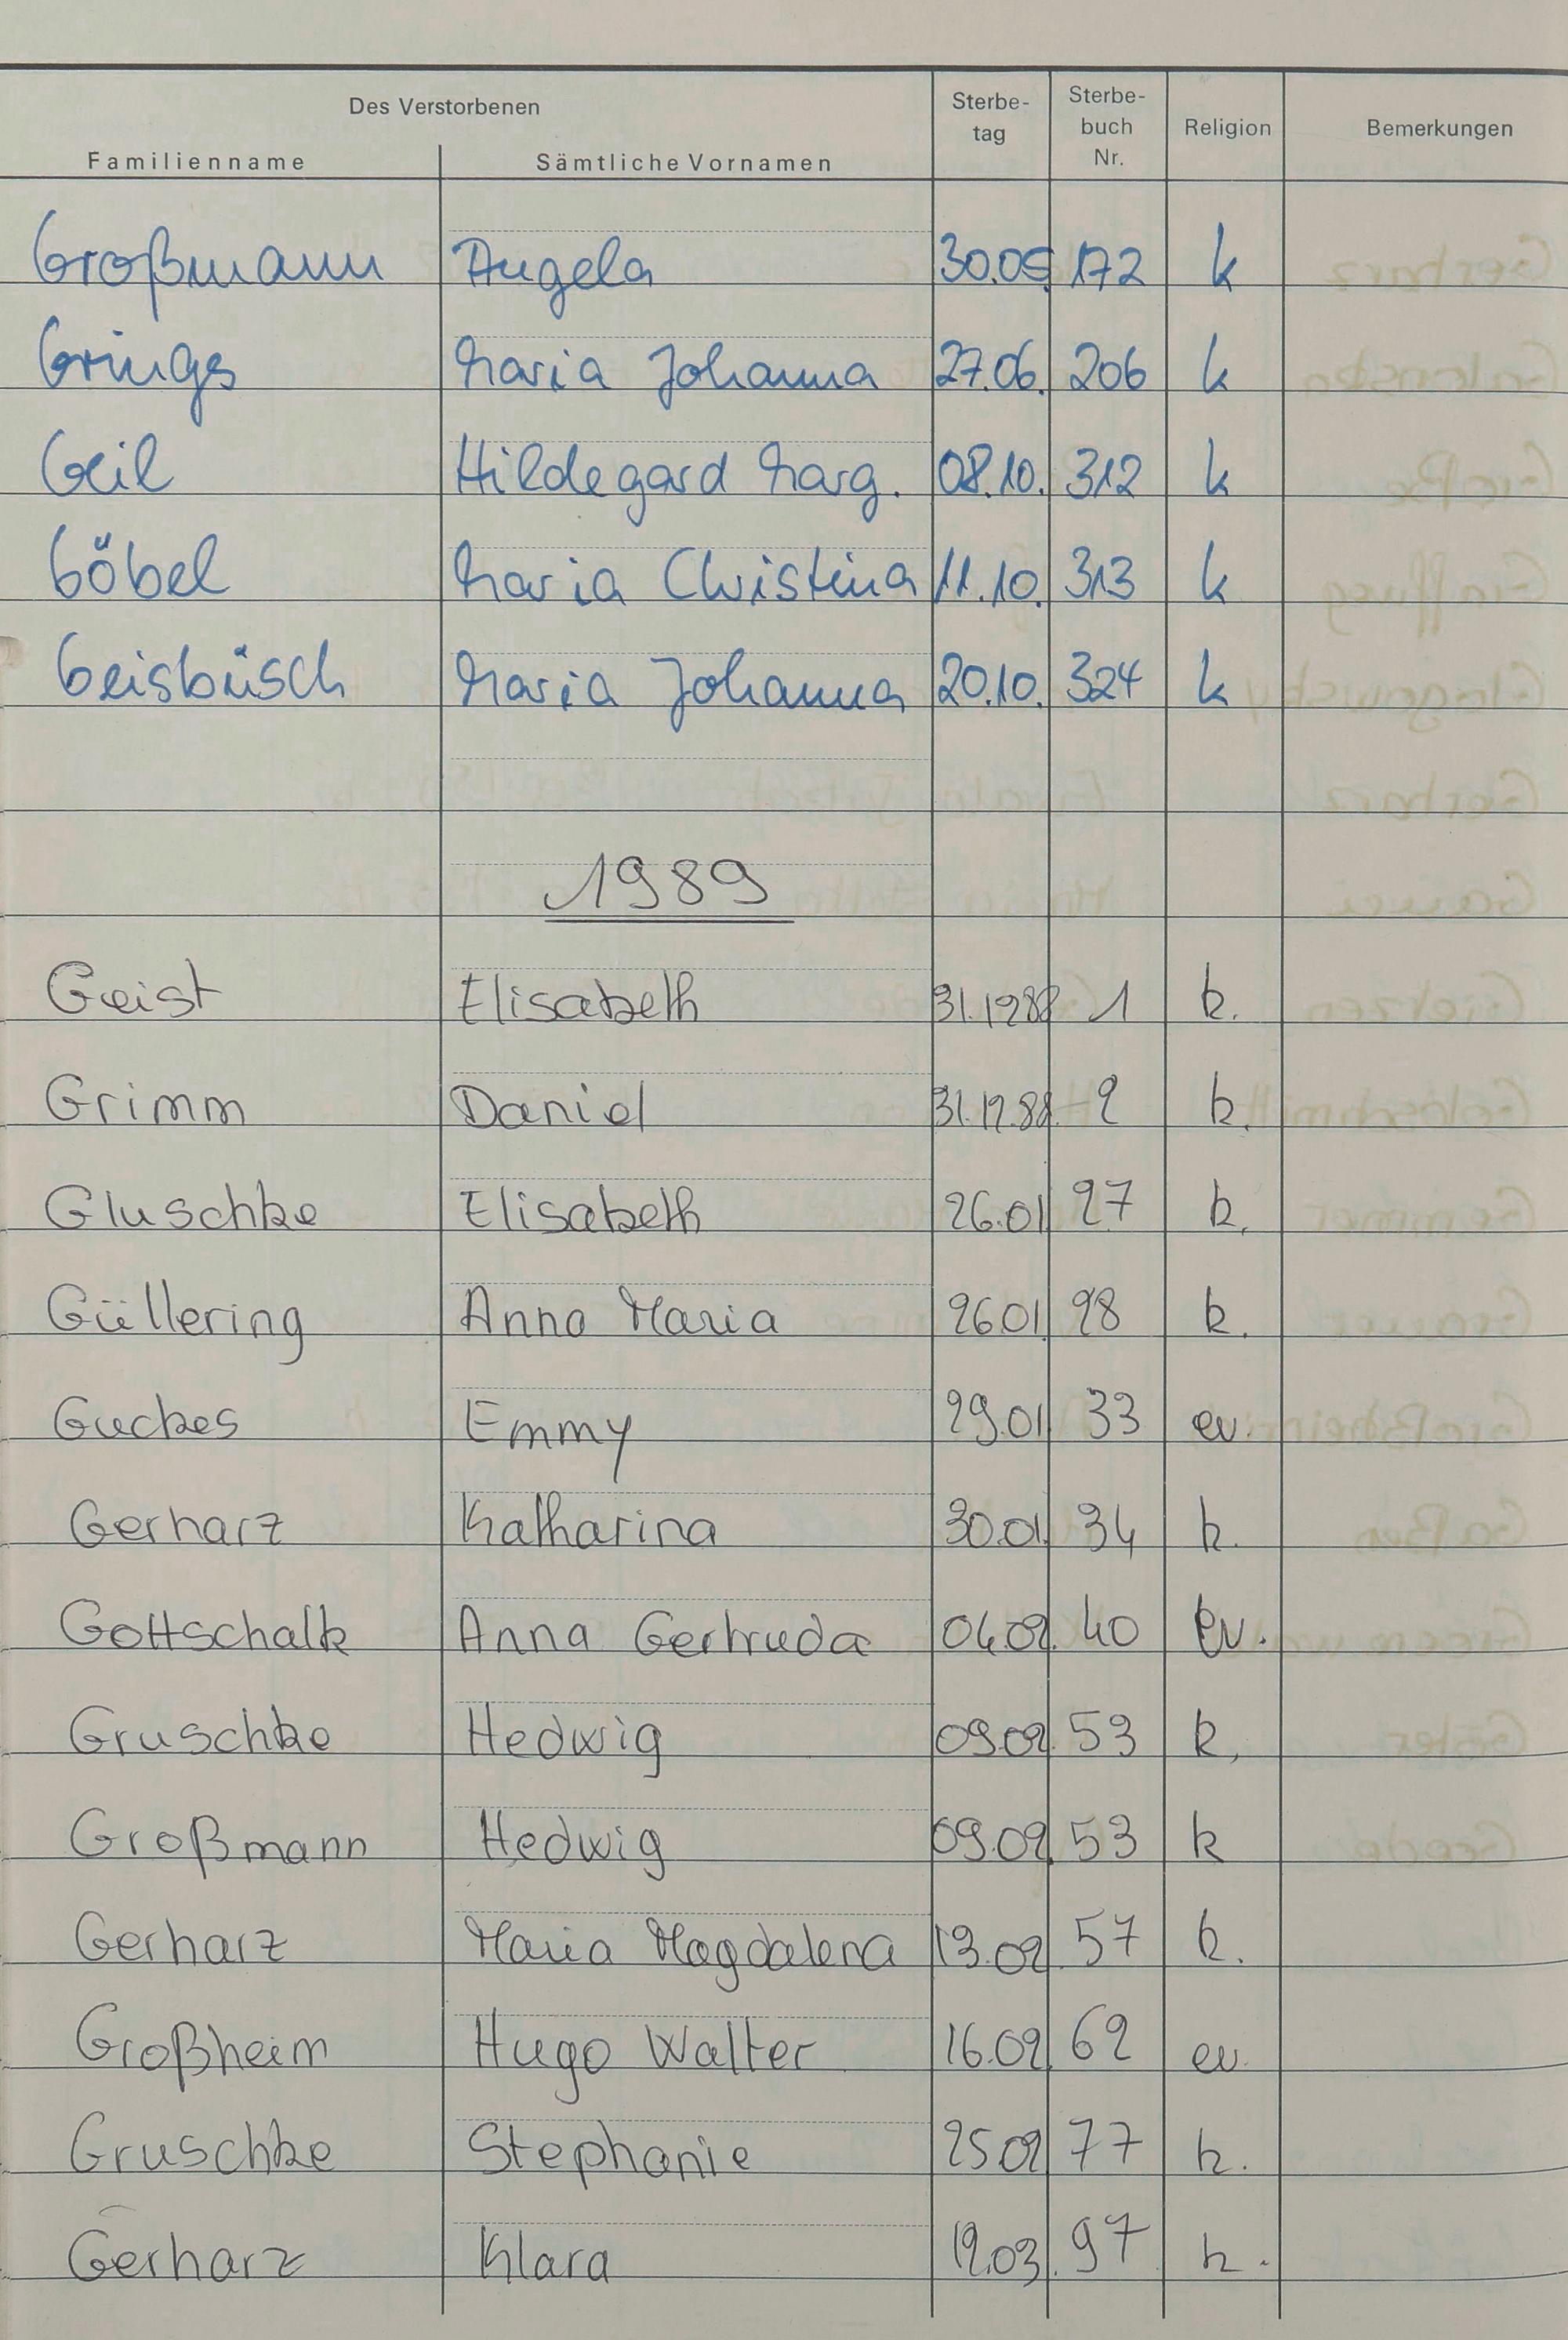 Des Verstorbenen
Familienname Sämtliche Vornamen Sterbe-tag Sterbe-buch Nr. Religion Bemerkungen
Großmann Angela 30.05. 172 k
Grings Maria Johanna 27.06. 206 k
Geil Hildegard Marg. 08.10. 312 k
Göbel Maria Christina 11.10. 313 k
Geisbüsch Maria Johanna 20.10. 324 k
1989
Geist Elisabeth 31.12 88 1 k.
Grimm Daniel 31.12.88 2 k.
Gluschke Elisabeth 26.01 27 k.
Güllering Anna Maria 26.01. 28 k.
Guckes Emmy 29.01 33 ev.
Gerharz Katharina 30.01. 34 k.
Gottschalk Anna Gertruda 04.02. 40 ev.
Gruschke Hedwig 09.02. 53 k.
Großmann Hedwig 09.02. 53 k
Gerharz Maria Magdalena 13.02. 57 k.
Großheim Hugo Walter 16.02. 62 ev.
Gruschke Stephanie 25 02 77 k.
Gerharz Klara 12.03. 97 k.